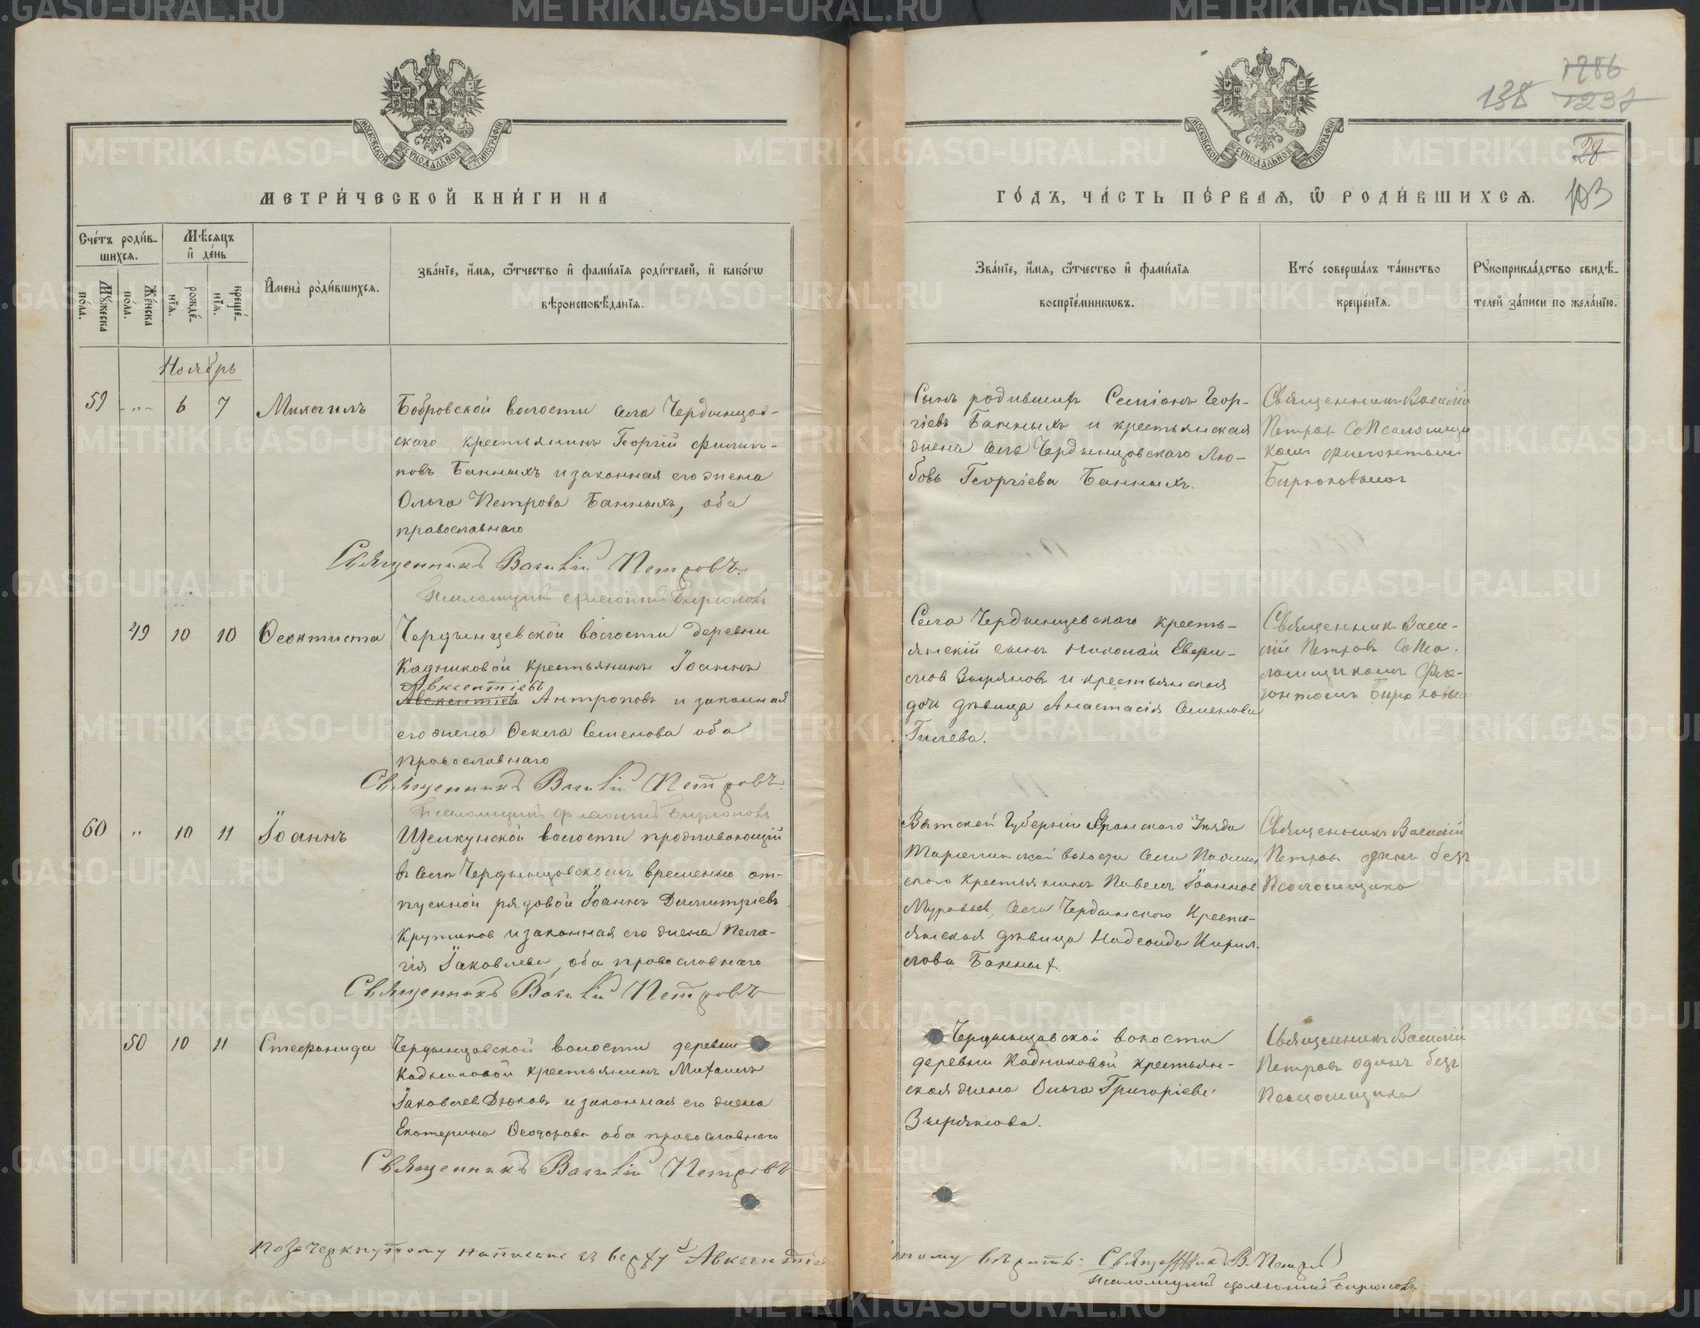 1286
138 1237
28
103
МОСКОВСКОЙ СѴНОДАЛЬНОЙ ТИПОГРАФІИ
МЕТРИ́ЧЕСКОЙ КНИ́ГИ НА
Сче́тъ роди́в-
шихся.
Мѣ́сяцъ
и҆ де́нь
Мꙋ́жеска
по́ла.
Же́нска
по́ла.
рожде́-
нїя.
креще́-
нїя.
И҆мена̀ роди́вшихся.
Зва́нїе, и҆́мя, ѻ҆́тчество и҆ фами́лїя роди́телей, и҆ како́гѡ
вѣроисповѣ́данїя.
Ноябрь
59 -"- 6 7 Михаилъ
Бобровской волости села Чердынцов-
скаго крестьянинъ Георгій Филип-
повъ Банныхъ и законная его жена
Ольга Петрова Банныхъ, оба
православнаго
Священникъ Василій Петровъ.
Псаломщикъ Флегонтъ Бирюковъ
49 10 10 Ѳеоктиста
Чердынцевской волости деревни
Кадниковой крестьянинъ Іоаннъ
Авксентіевъ
Авксентіев Антроповъ и законная
его жена Ѳекла Семенова оба
православнаго
Священникъ Василій Петровъ.
Псаломщикъ Флегонтъ Бирюковъ
60 " 10 11 Іоаннъ
Щелкунской волости проживающій
в селѣ Чердынцовскомъ временно от-
пускной рядовой Іоаннъ Димитріевъ
Крутиков и законная его жена Пела-
гія Іаковлева, оба православнаго
Священникъ Василій Петровъ
50 10 11 Стефанида
Чердынцовской волости деревни
Кадниковой крестьянинъ Михаилъ
Іаковлев Дюковъ и законная его жена
Екатерина Ѳеодорова оба православнаго
Священникъ Василій Петровъ
По зачеркнутому написано въ верху "Авксентіев
МОСКОВСКОЙ СѴНОДАЛЬНОЙ ТИПОГРАФІИ
ГО́ДЪ, ЧА́СТЬ ПЕ́РВАЯ, Ѽ РОДИ́ВШИХСЯ.
Зва́нїе, и҆́мя, ѻ҆́тчество и҆ фами́лїя
воспрїе́мниковъ.
Кто̀ соверша́лъ та́инство
креще́нїя.
Рꙋкоприкла́дство свидѣ́-
телей за́писи по жела́нїю.
Сынъ родившихъ Семіонъ Геор-
гіевъ Банныхъ и крестьянская
жена села Чердынцовскаго Лю-
бовь Георгіева Банныхъ.
Священникъ Василій
Петровъ со Псаломщи
комъ Флегонтомъ
Бирюковымъ
Села Чердынцевскаго кресть-
янскій сынъ Николай
Зырянов и крестьянская
дочь дѣвица Анастасія Семенова
Гилева.
Священникъ Васи-
лій Петровъ со Пса-
ломщикомъ Фле-
гонтомъ Бирюковым
Вятской Губерніи Яранского Уѣзда
волости села
крестьянинъ Павелъ Іоаннов
Муравьев, села Чердынского кресть-
янская дѣвица Надежда Кирил-
лова Банных.
Священникъ Василій
Петровъ одинъ безъ
Псаломщика
Чердынцовской волости
деревни Кадниковой крестьян-
ская жена Ольга Григоріева
Зырянова.
Священникъ Василій
Петровъ одинъ безъ
Псаломщика
тому вѣрить: Священникъ В. Петров
Псаломщикъ Флегонтъ Бирюковъ.
METRIKI.GASO-URAL.RU